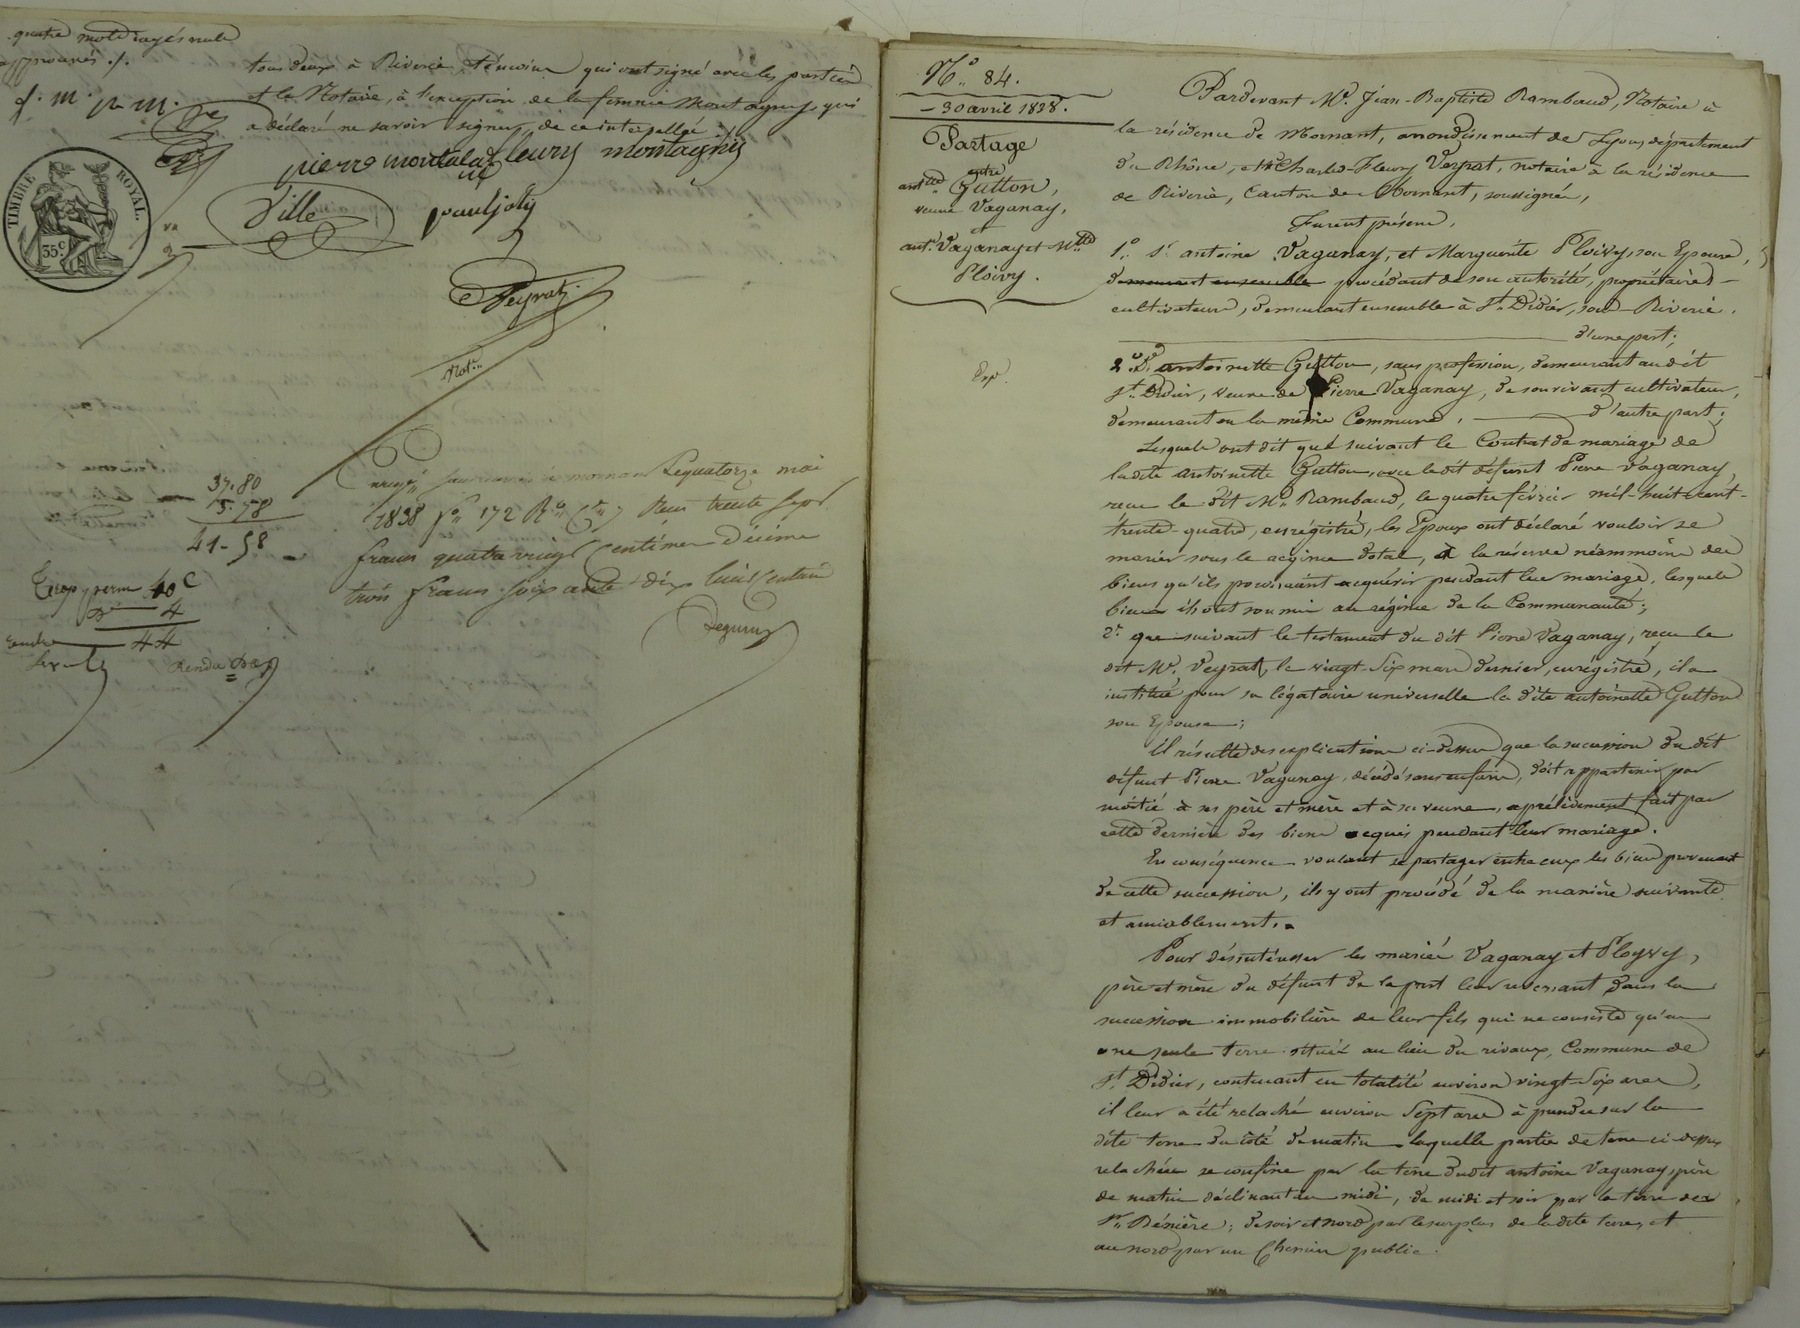 quatre mots rayés nuls
approuvés ./.
f. m. p. m.
tous deux à Riverie, témoins qui ont signé avec les parties
et le Notaire, à l'exception de la femme Montagny, qui
a déclaré ne savoir signer, de ce interpellé
pierre montaland fleury montagny
TIMBRE ROYAL.
35.c
Ville pauljoly
Veyrat
Not.re
37.80
3.78
41-58
mornant Lequatorze mai
1838 f.o 172 R.o Reçu trente sept
francs quatre vingt centimes Décime
trois francs soixante dix huit centimes
40 C
4
44
Rendu
N.o 84.
30 avril 1838.
Partage
entre
ant.tte Gutton,
veuve Vaganay,
et
ant.e Vaganay et M.tte
Ploivy.
Exp.
Pardevant M.e Jean-Baptiste Rambaud, Notaire à
la résidence de Mornant, arrondissement de Lyon, département
du Rhône, et M.e Charles-Fleury Veyrat, notaire à la résidence
de Riverie, Canton de Mornant, soussignés,
Furent présens,
1.o S.r antoine Vaganay, et Marguerite Ploivy, son Epouse,
demeurant ensemble procédant de son autorité, propriétaires-
cultivateurs, demeurant ensemble à S.t Didier, sous-Riverie,
d'une part;
2.o D.e antoinette Gutton, sans profession, demeurant audit
S.t Didier, veuve de Pierre Vaganay, de son vivant cultivateur,
demeurant en la même Commune, d'autre part;
Lesquels ont dit que suivant le Contrat de mariage de
ladite antoinette Gutton, avec le dit défunt Pierre Vaganay
reçu le dit M.e Rambaud, le quatre février mil-huit-cent-
trente-quatre, enrégistré, les Epoux ont déclaré vouloir se
marier sous le régime dotal, à la réserve néammoins des
biens qu'ils pourraient acquérir pendant leur mariage, lesquels
biens ils ont soumis au régime de la Communauté;
2.o que suivant le testament du dit Pierre Vaganay, reçu le
dit M.e Veyrat, le vingt-six mars dernier, enrégistré, il a
institué pour sa légataire universelle la dite antoinette Gutton
son Epouse;
Il résulte des explications ci-dessus que la succession du dit
défunt Pierre Vaganay, décédé sans enfans, doit appartenir par
moitié à ses père et mère et à sa veuve, aprélèvement fait par
cette dernière des biens acquis pendant leur mariage.
En conséquence voulant se partager entre eux les biens provenant
de cette succession, ils y ont procédé de la manière suivante
et amiablement.
Pour désintéresser les mariés Vaganay et Ployvy,
père et mère du défunt de la part leur revenant dans la
succession immobilière de leur fils qui ne consiste qu'en
une seule terre située au lieu du rivaux, Commune de
S.t Didier, contenant en totalité environ vingt-six ares,
il leur a été relaché environ sept ares à prendre sur la
dite terre du côté du matin laquelle partie de terre ci-dessus
relachée se confine par la terre dudit antoine Vaganay, père
de matin déclinant au midi, de midi et soir par la terre des
S.rs Bénière; de soir et nord par le surplus de ladite terre, et
au nord par un Chemin public.